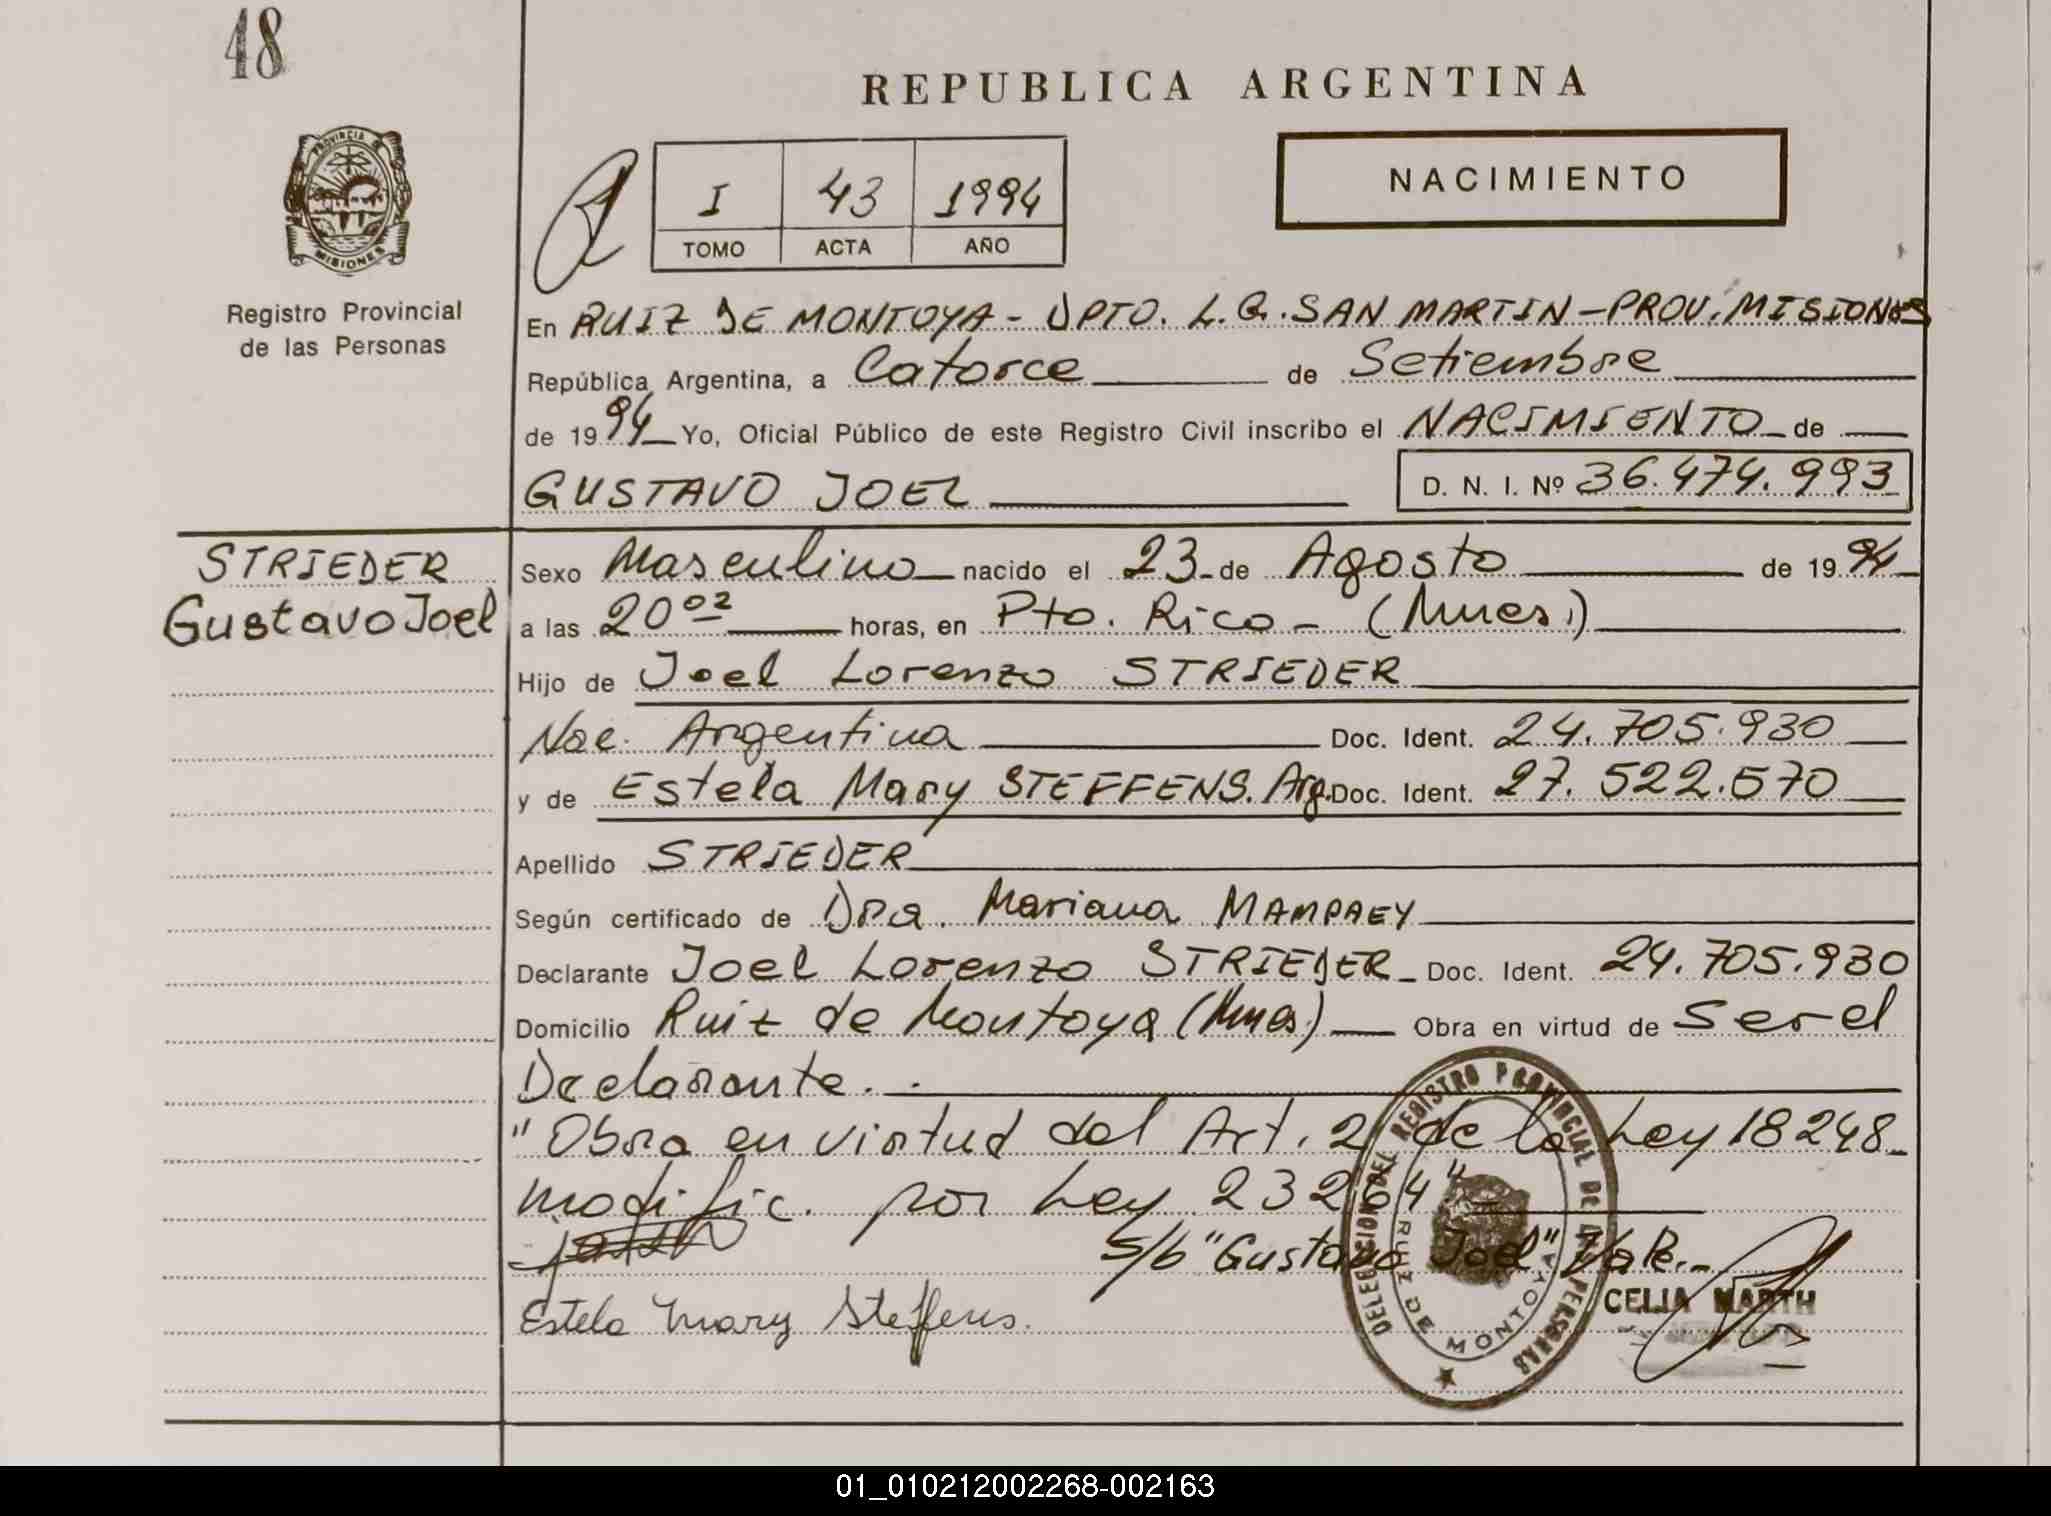 48
REPUBLICA ARGENTINA
PROVINCIA DE MISIONES
I 43 1994
TOMO ACTA AÑO
NACIMIENTO
Registro Provincial
de las Personas
En RUIZ DE MONTOYA - DPTO. L.G. SAN MARTIN - PROV. MISIONES
República Argentina, a Catorce de Setiembre
de 1994 Yo, Oficial Público de este Registro Civil inscribo el NACIMIENTO de
GUSTAVO JOEL D. N. I. Nº 36.474.993
STRIEDER
Gustavo Joel
Sexo Masculino nacido el 23 de Agosto de 1994
a las 20 02 horas, en Pto. Rico - (Mnes.)
Hijo de Joel Lorenzo STRIEDER
Nac. Argentina Doc. Ident. 24.705.930
y de Estela Mary STEFFENS. Arg. Doc. Ident. 27.522.570
Apellido STRIEDER
Según certificado de Dra. Mariana MAMPAEY
Declarante Joel Lorenzo STRIEDER Doc. Ident. 24.705.930
Domicilio Ruiz de Montoya (Mnes.) Obra en virtud de Ser el
Declarante. -
"Obra en virtud del Art. 2 de la Ley 18248
modific. por Ley 23264"
S/b "Gustavo Joel" Vale.-
Estela Mary Steffens.
DELEGACION DEL REGISTRO PROVINCIAL DE LAS PERSONAS
RUIZ DE MONTOYA
CELIA MARTH
01_010212002268-002163